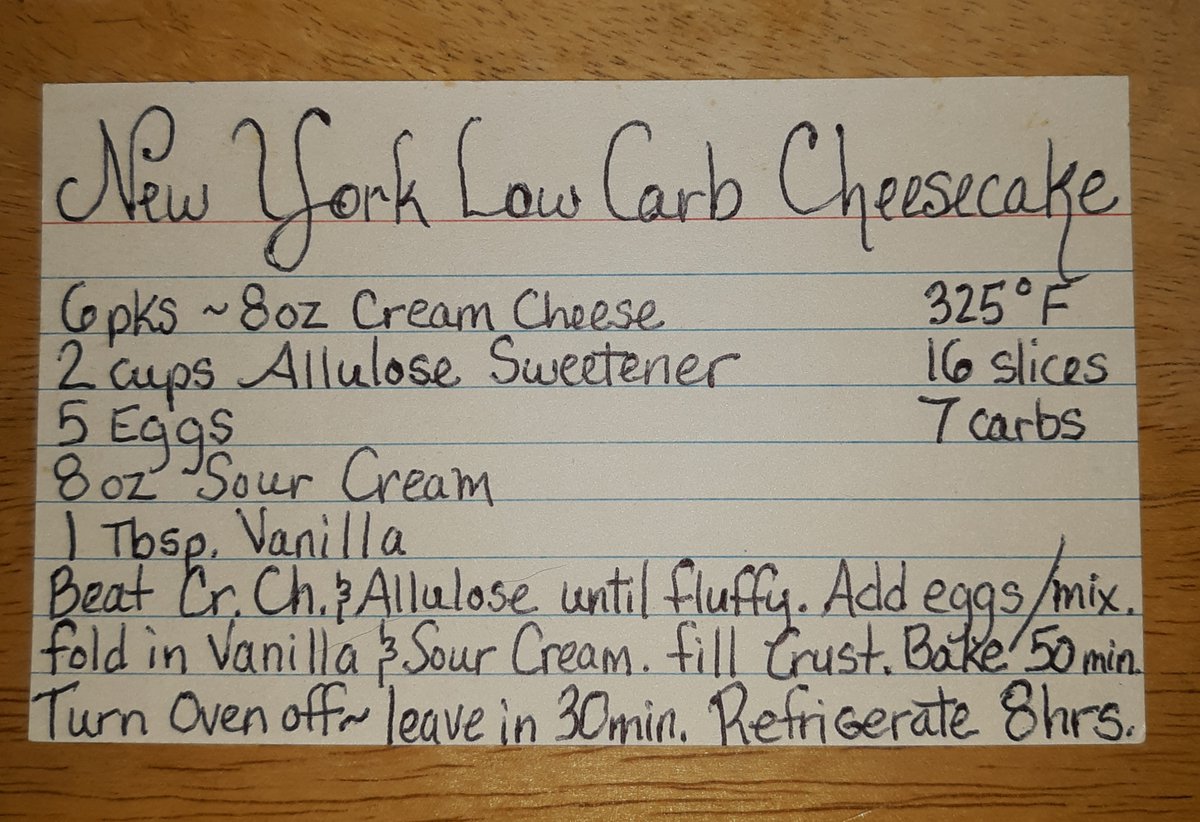 New York Low Carb Cheesecake
6 pks ~ 8oz Cream Cheese 325°F
2 cups Allulose Sweetener 16 slices
5 Eggs 7 carbs
8 oz Sour Cream
1 Tbsp. Vanilla
Beat Cr. Ch. & Allulose until fluffy. Add eggs/mix.
fold in Vanilla & Sour Cream. fill Crust. Bake 50 min.
Turn Oven off~ leave in 30min. Refrigerate 8hrs.